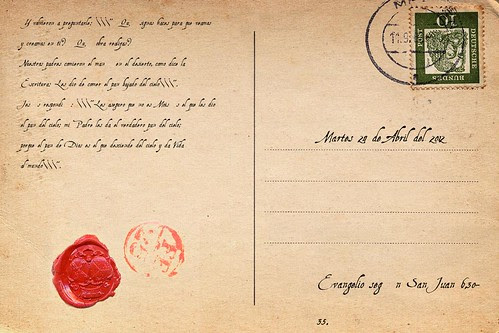 Y volvieron a preguntarle: "¿Qu signos haces para que veamos
y creamos en ti? ¿Qu obra realizas?
Nuestros padres comieron el man en el desierto, como dice la
Escritura: Les dio de comer el pan bajado del cielo".
Jes s respondi : "Les aseguro que no es Mois s el que les dio
el pan del cielo; mi Padre les da el verdadero pan del cielo;
porque el pan de Dios es el que desciende del cielo y da Vida
al mundo".
10
DEUTSCHE
BUNDES
POST
Martes 24 de Abril del 2012
Evangelio seg n San Juan 6,30-
35.